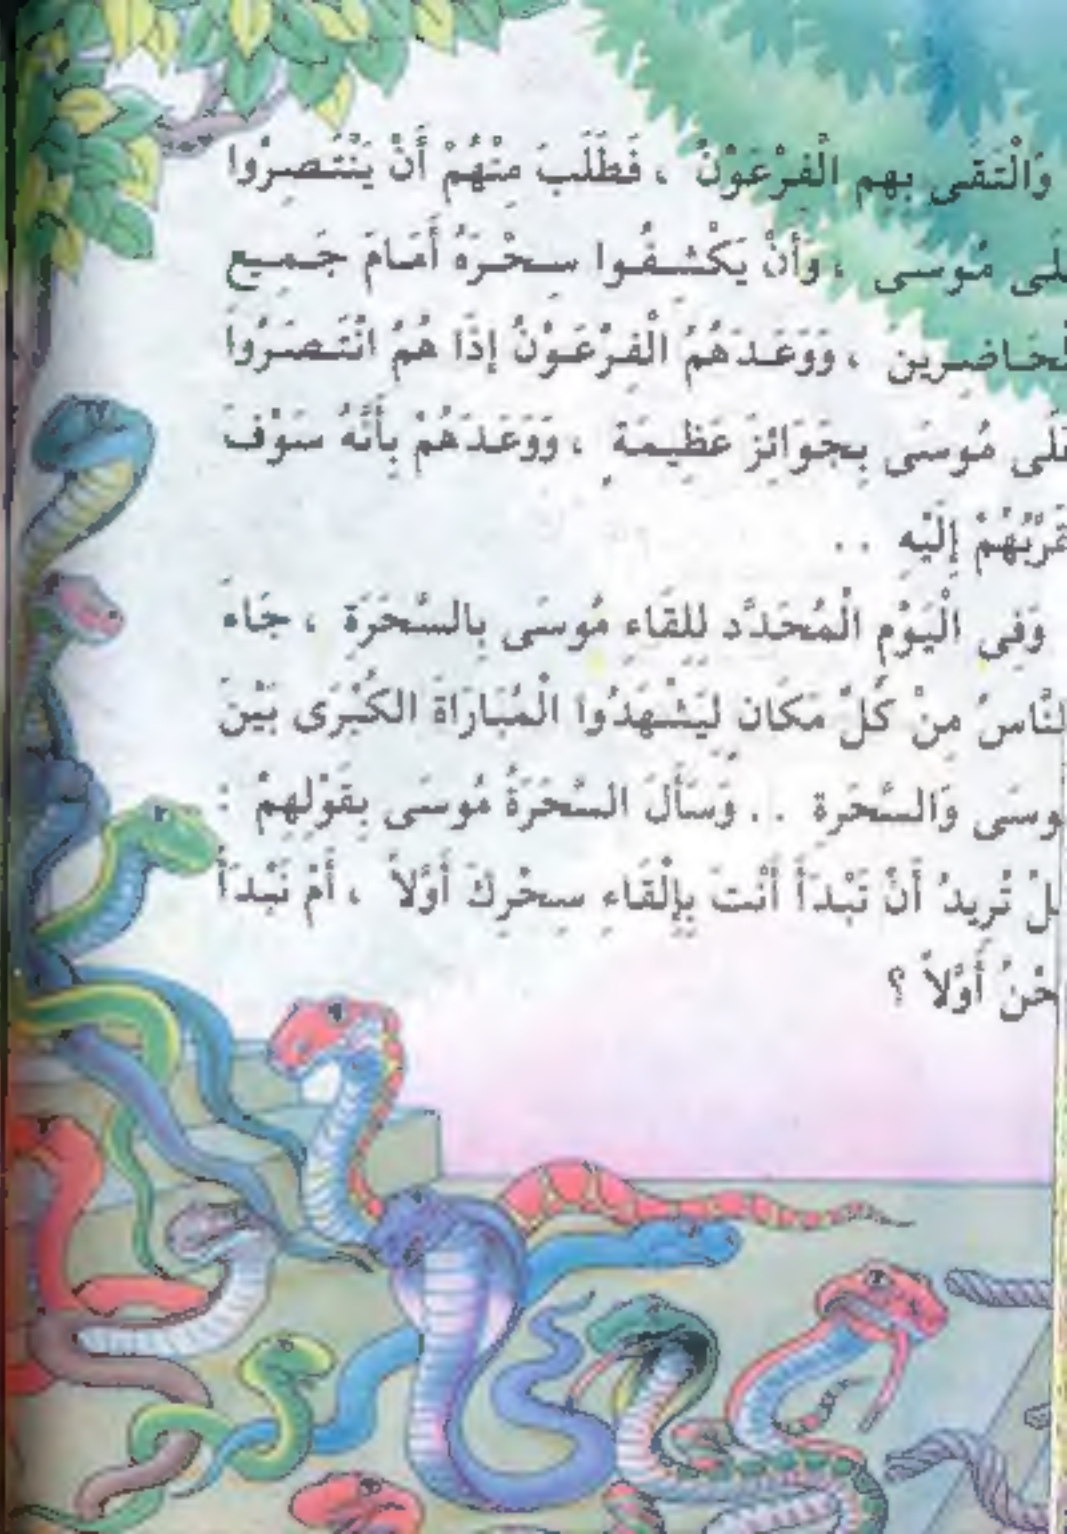 وَالْتَقَى بِهِمِ الْفِرْعَوْنُ ، فَطَلَبَ مِنْهُمْ أَنْ يَنْتَصِرُوا
لَى مُوسَى ، وَأَنْ يَكْشِفُوا سِحْرَهُ أَمَامَ جَمِيعِ
لْحَاضِرِينَ ، وَوَعَدَهُمُ الْفِرْعَوْنُ إِذَا هُمُ انْتَصَرُوا
عَلَى مُوسَى بِجَوَائِزَ عَظِيمَةٍ ، وَوَعَدَهُمْ بِأَنَّهُ سَوْفَ
قَرِّبُهُمْ إِلَيْهِ ..
وَفِى الْيَوْمِ الْمُحَدَّدِ لِلِقَاءِ مُوسَى بِالسَّحَرَةِ ، جَاءَ
لنَّاسُ مِنْ كُلِّ مَكَانٍ لِيَشْهَدُوا الْمُبَارَاةَ الكُبْرَى بَيْنَ
وسَى وَالسَّحَرةِ .. وَسَأَلَ السَّحَرَةُ مُوسَى بِقَوْلِهِمْ :
لْ تُرِيدُ أَنْ تَبْدَأَ أَنْتَ بِإِلْقَاءِ سِحْرِكَ أَوَّلاً ، أَمْ نَبْدَأُ
حْنُ أَوَّلاً ؟